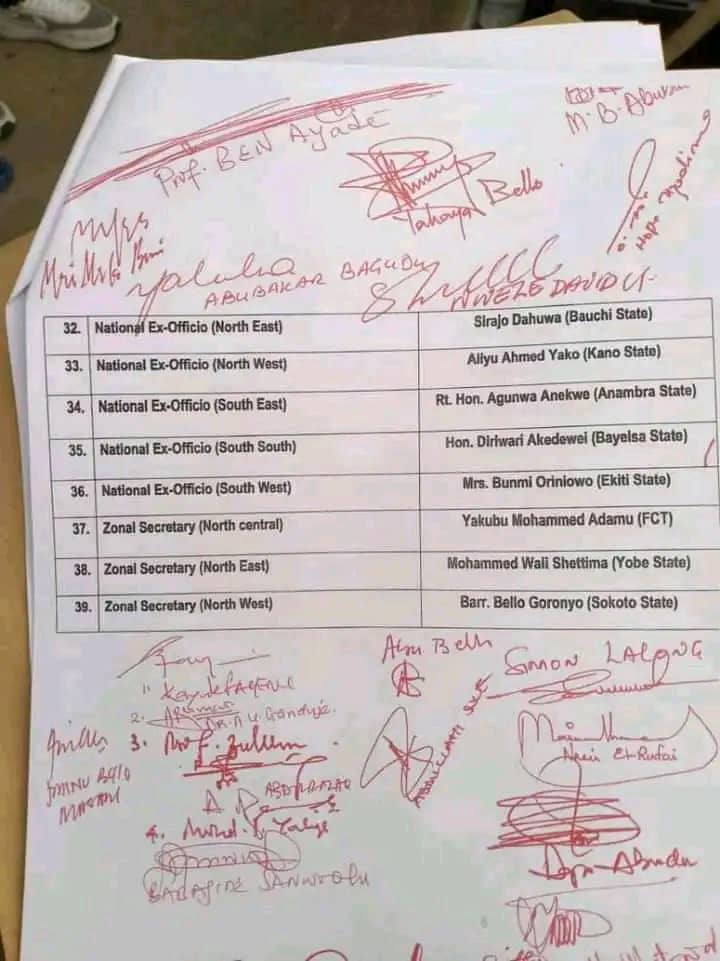 Prof. BEN Ayade
M.B. Abubakar
Yahaya Bello
Hope Uzodinma
Mai Mala Buni
ABUBAKAR BAGUDU
NWEZE DAVID U.
32. National Ex-Officio (North East) Sirajo Dahuwa (Bauchi State)
33. National Ex-Officio (North West) Aliyu Ahmed Yako (Kano State)
34. National Ex-Officio (South East) Rt. Hon. Agunwa Anekwe (Anambra State)
35. National Ex-Officio (South South) Hon. Diriwari Akedewei (Bayelsa State)
36. National Ex-Officio (South West) Mrs. Bunmi Oriniowo (Ekiti State)
37. Zonal Secretary (North central) Yakubu Mohammed Adamu (FCT)
38. Zonal Secretary (North East) Mohammed Wali Shettima (Yobe State)
39. Zonal Secretary (North West) Barr. Bello Goronyo (Sokoto State)
Abu Bello
SIMON LALONG
2. DR. A. U. Ganduje
3. Prof. Zulum
ABDULLAHI SULE
Nasir El-Rufai
AMINU BELLO
MASARI
ABDULRAZAQ
4. Mohd. I. Yahaya
BABAJIDE SANWOOLU
Dapo Abiodun